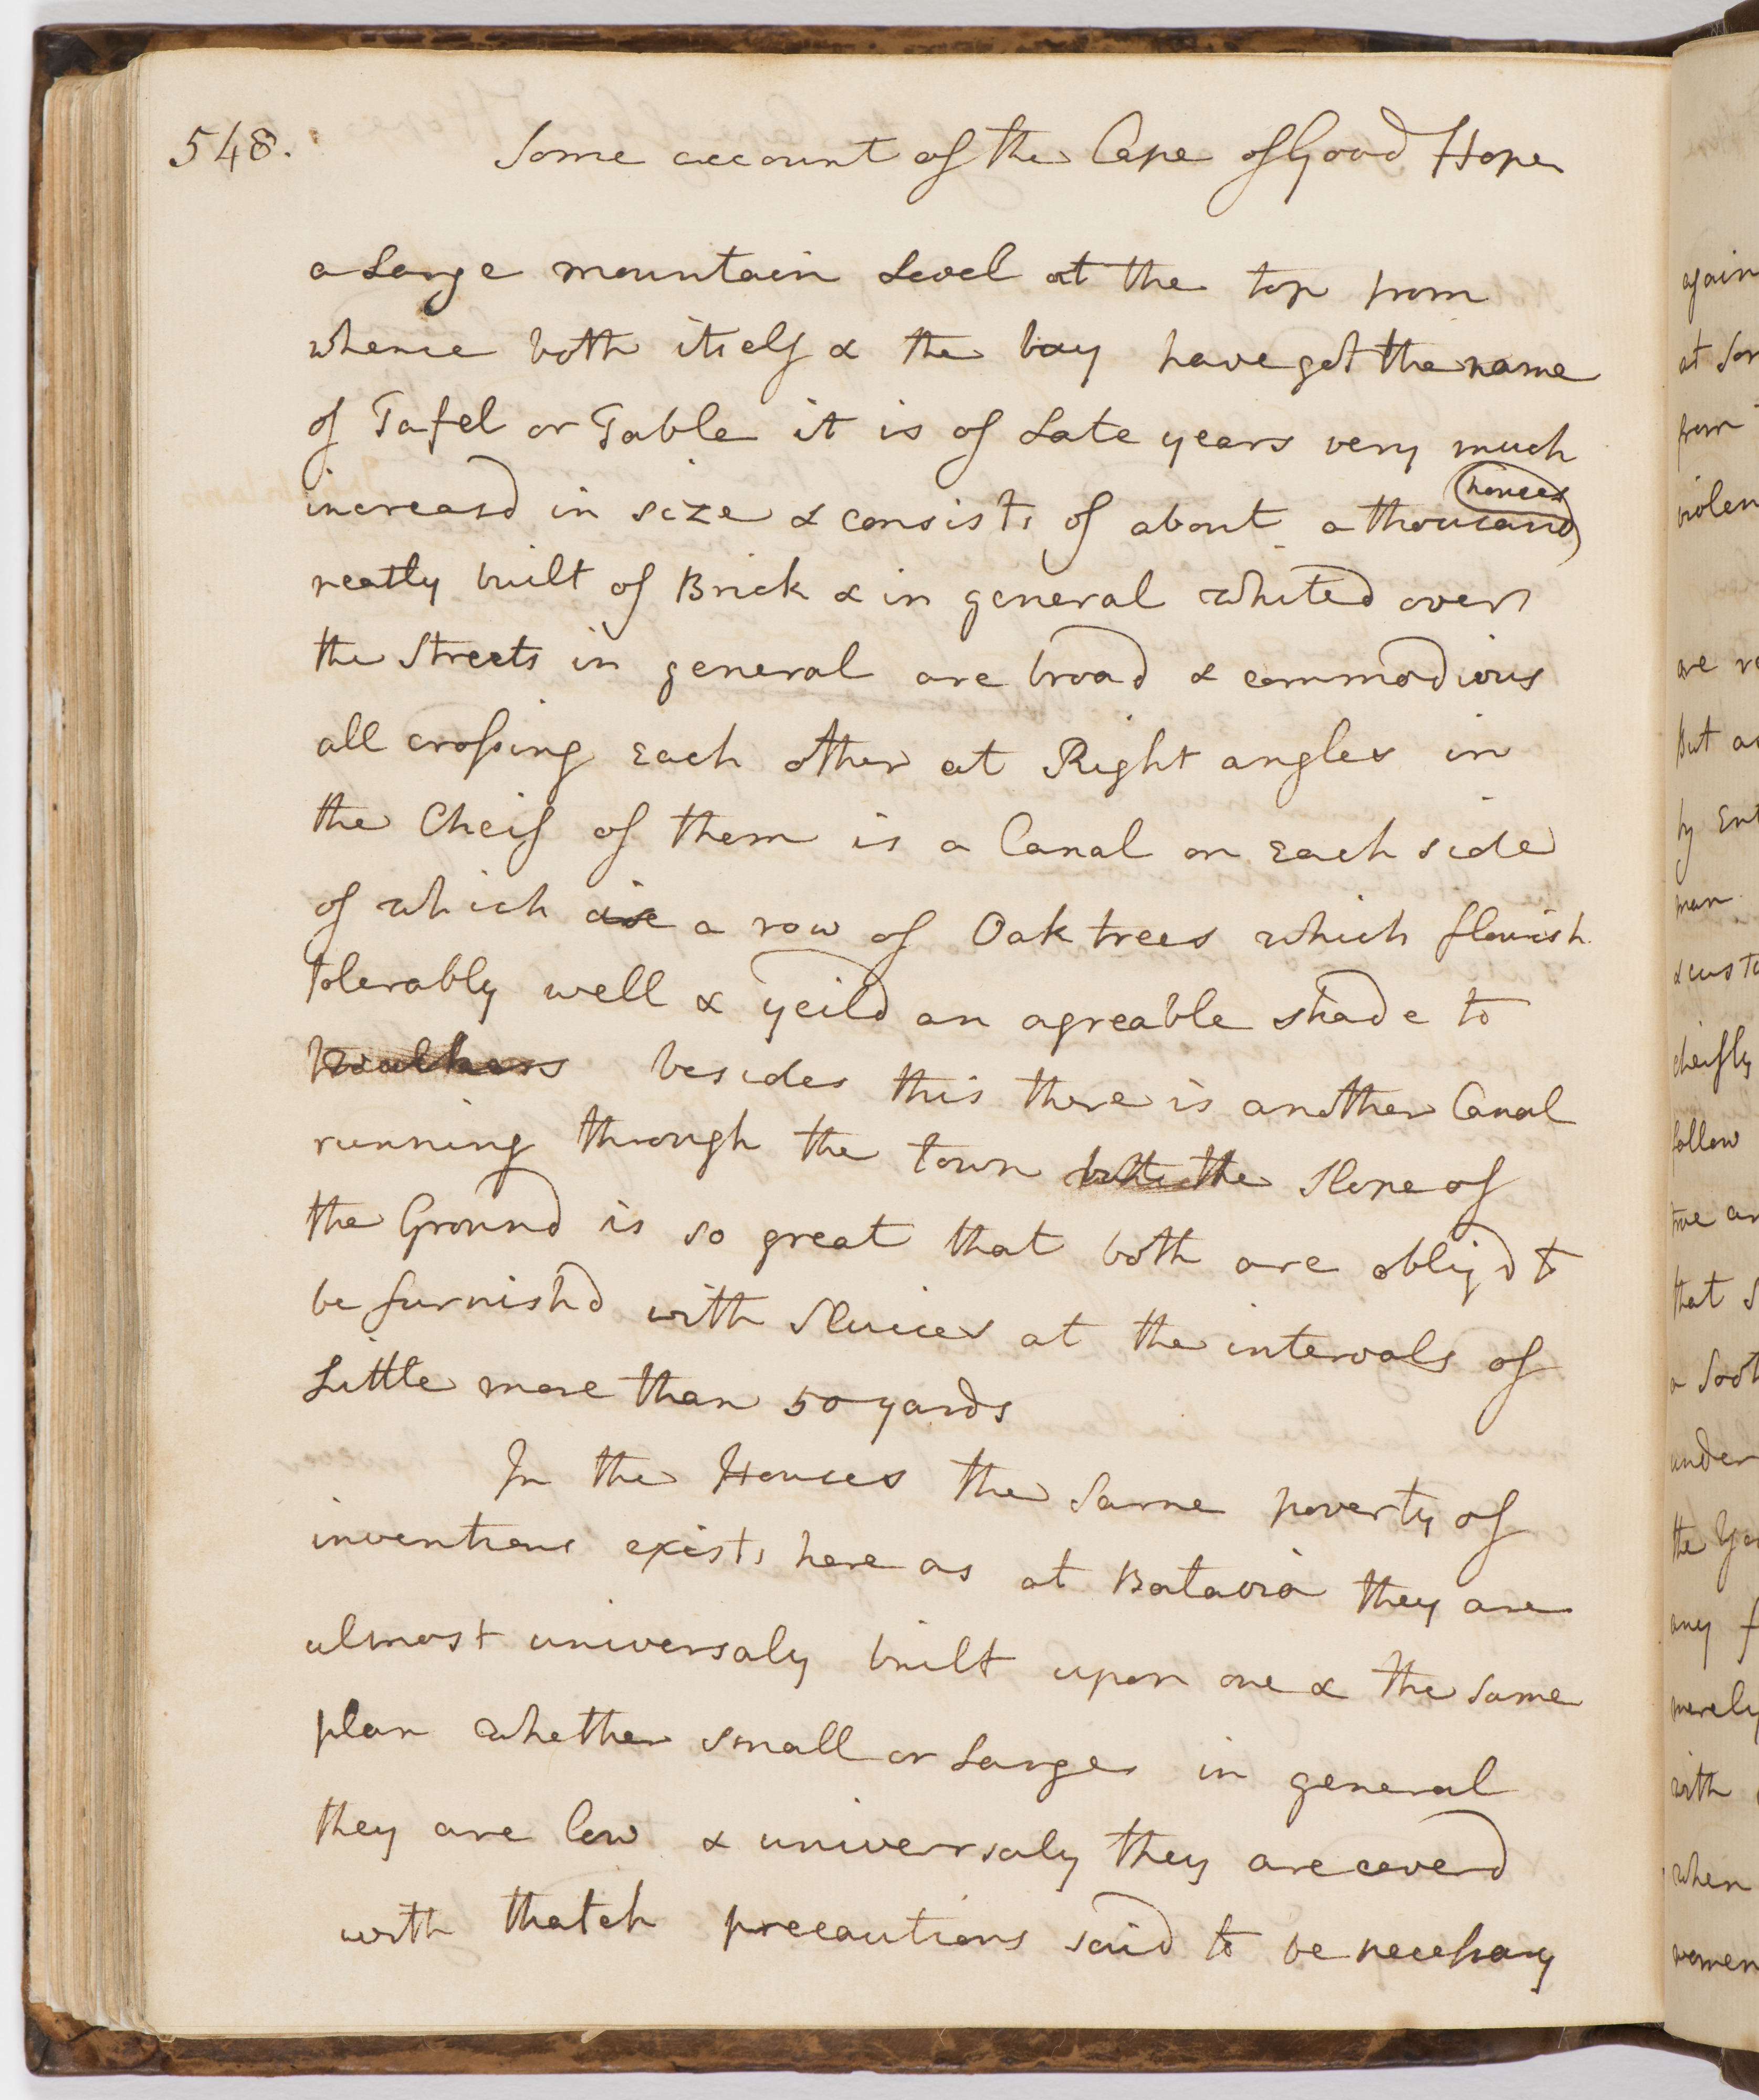 548.
Some account of the Cape of Good Hope
a Large mountain Level at the top from
whence both itself & the bay have got the name
of Tafel or Table it is of Late years very much
increasd in size & consists of about a thousand houses
neatly built of Brick & in general whited over
the Streets in general are broad & commodious
all crossing Each other at Right angles in
the Cheif of them is a Canal on Each side
of which is a row of Oak trees which flourish
tolerably well & yeild an agreable shade to
walkers besides this there is another Canal
running through the town but the slope of
the Ground is so great that both are obligd to
be furnishd with Sluices at the intervals of
Little more than 50 yards
In the Houses the same poverty of
inventions exists here as at Batavia they are
almost universaly built upon one & the same
plan whether small or Large in general
they are low & universaly they are coverd
with thatch precautions said to be necessary
again
from
are
But
by
man
cheifly
follow
true
that
under
the
any
merely
with
when
women